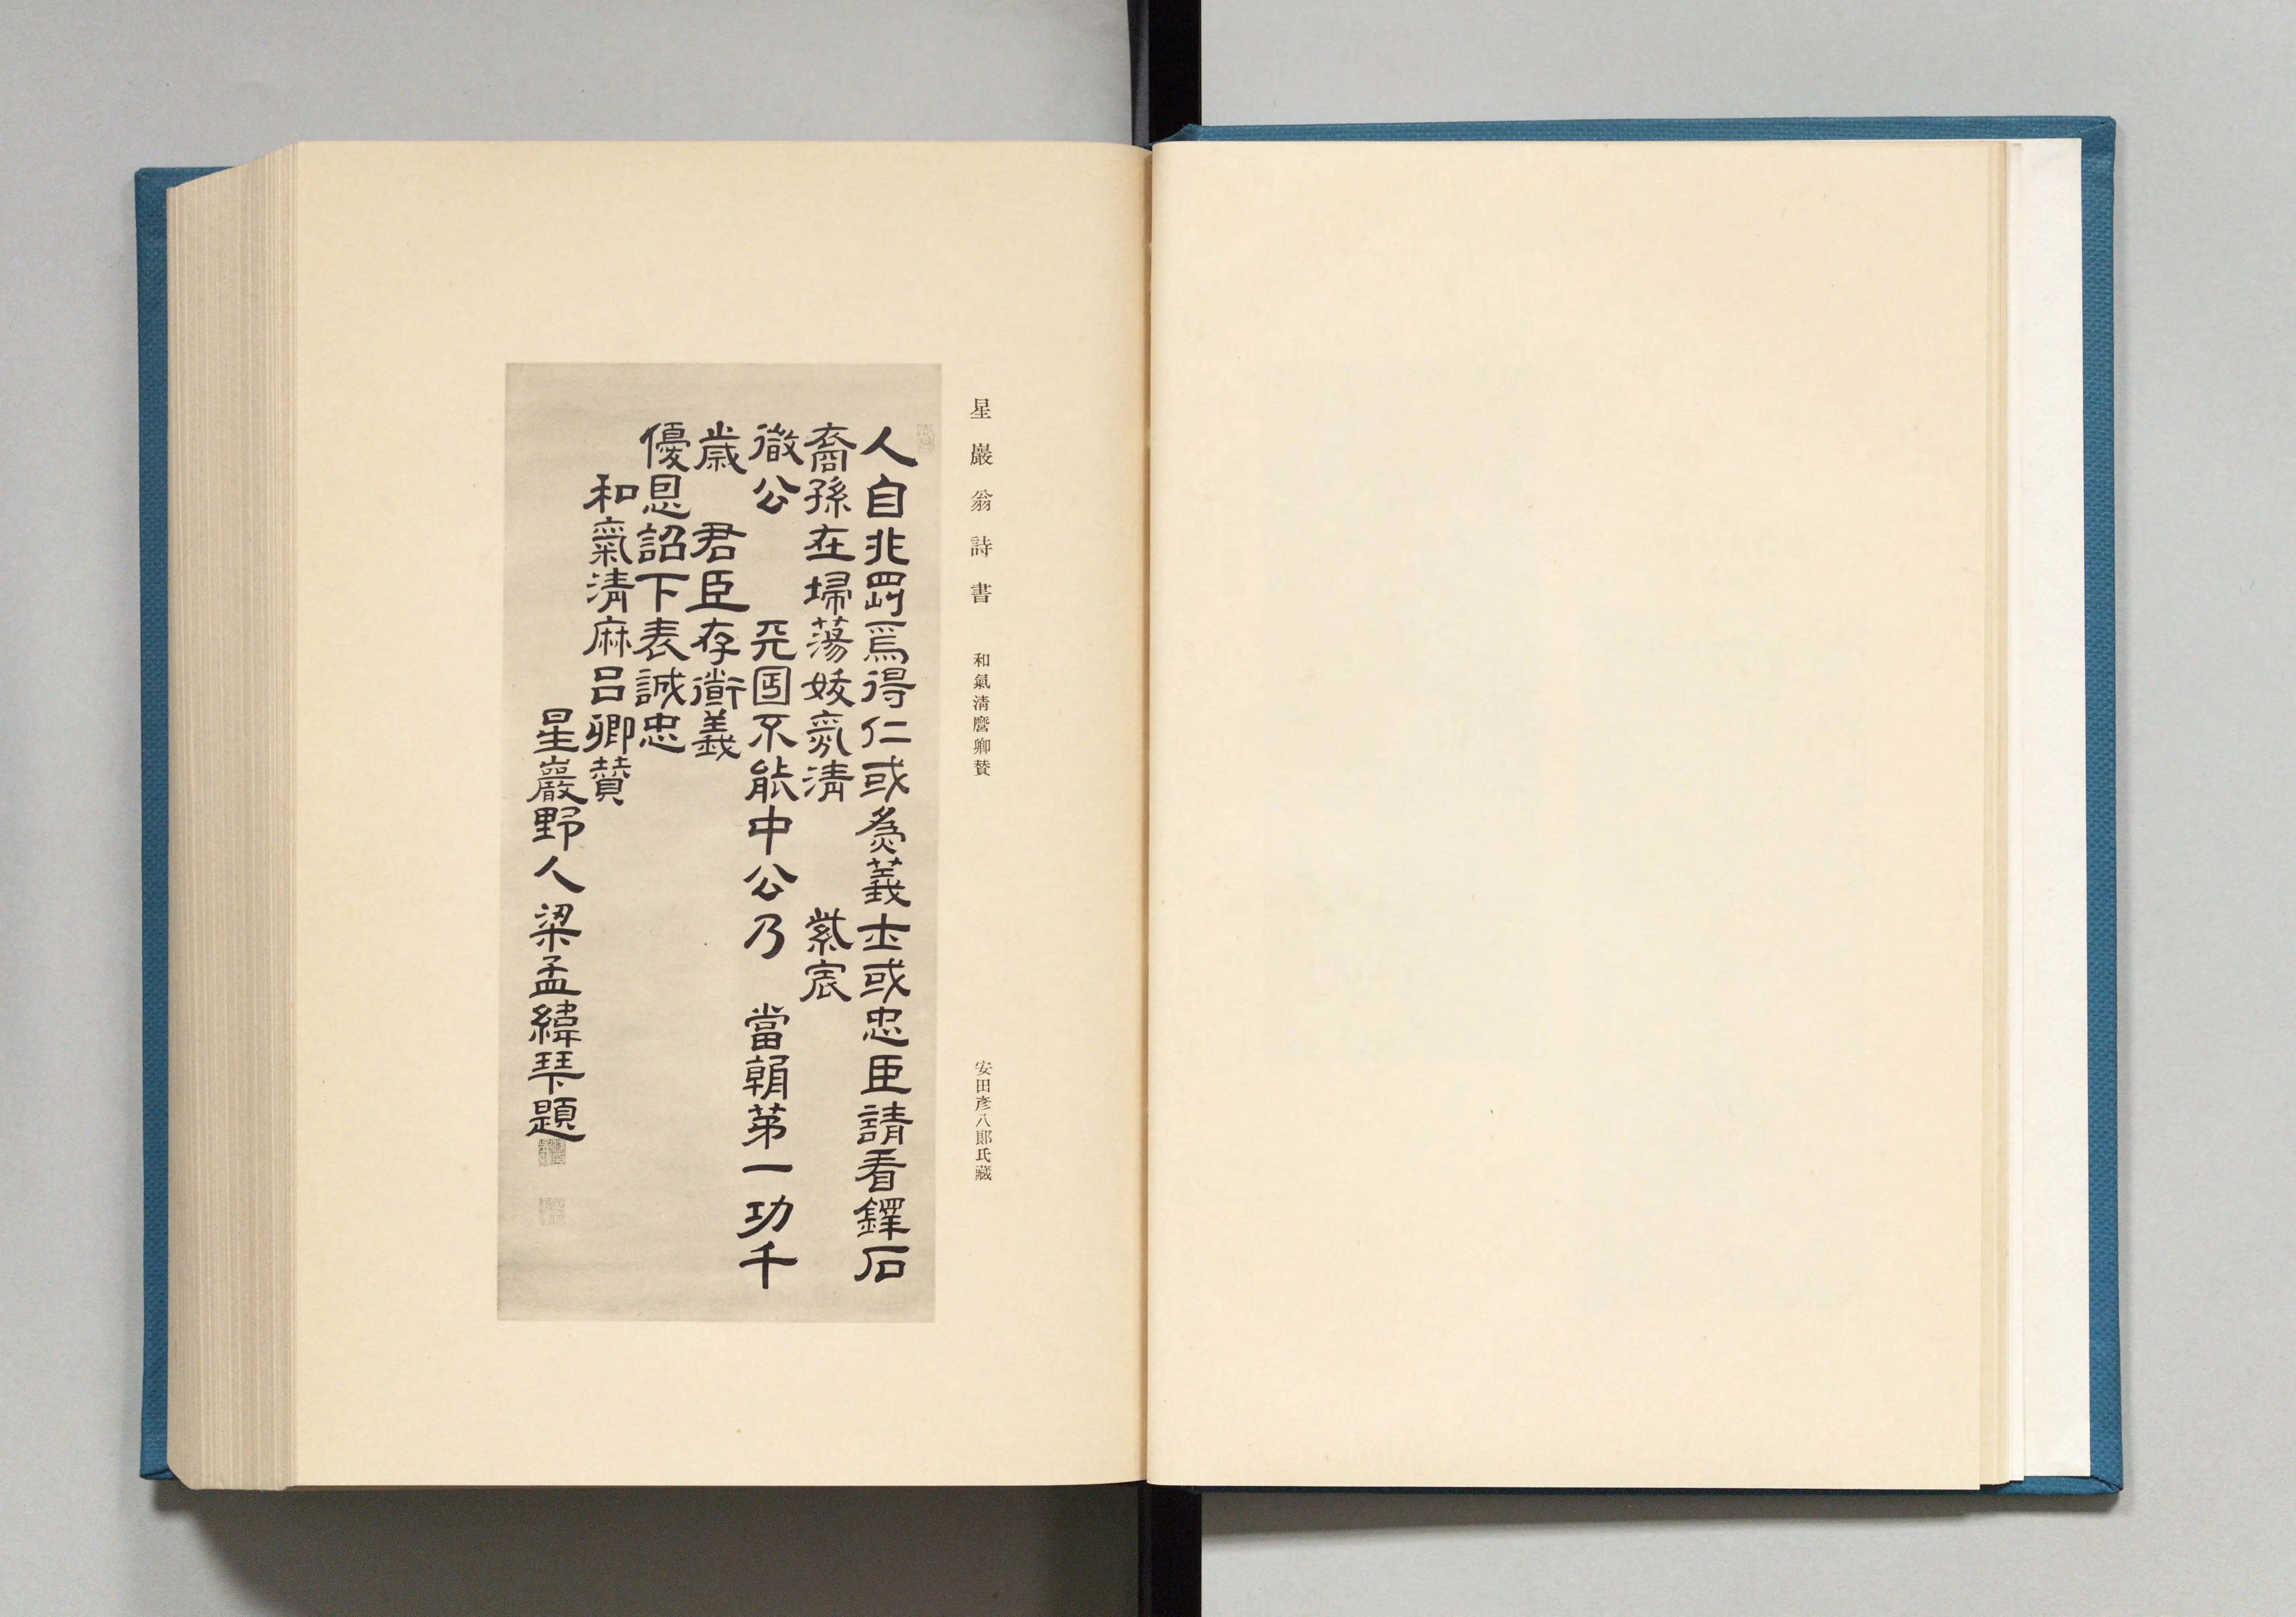 星巖翁詩書 和氣淸麿卿贊 安田彥八郞氏藏
人自非剛焉得仁或爲義士或忠臣請看鐸石
裔孫在埽蕩妖氛淸 紫宸
微公 兲囸不能中公乃 當朝第一功千
歲 君臣存衟義
優恩詔下表誠忠
和氣淸麻呂卿贊
星巖野人梁孟緯琴題